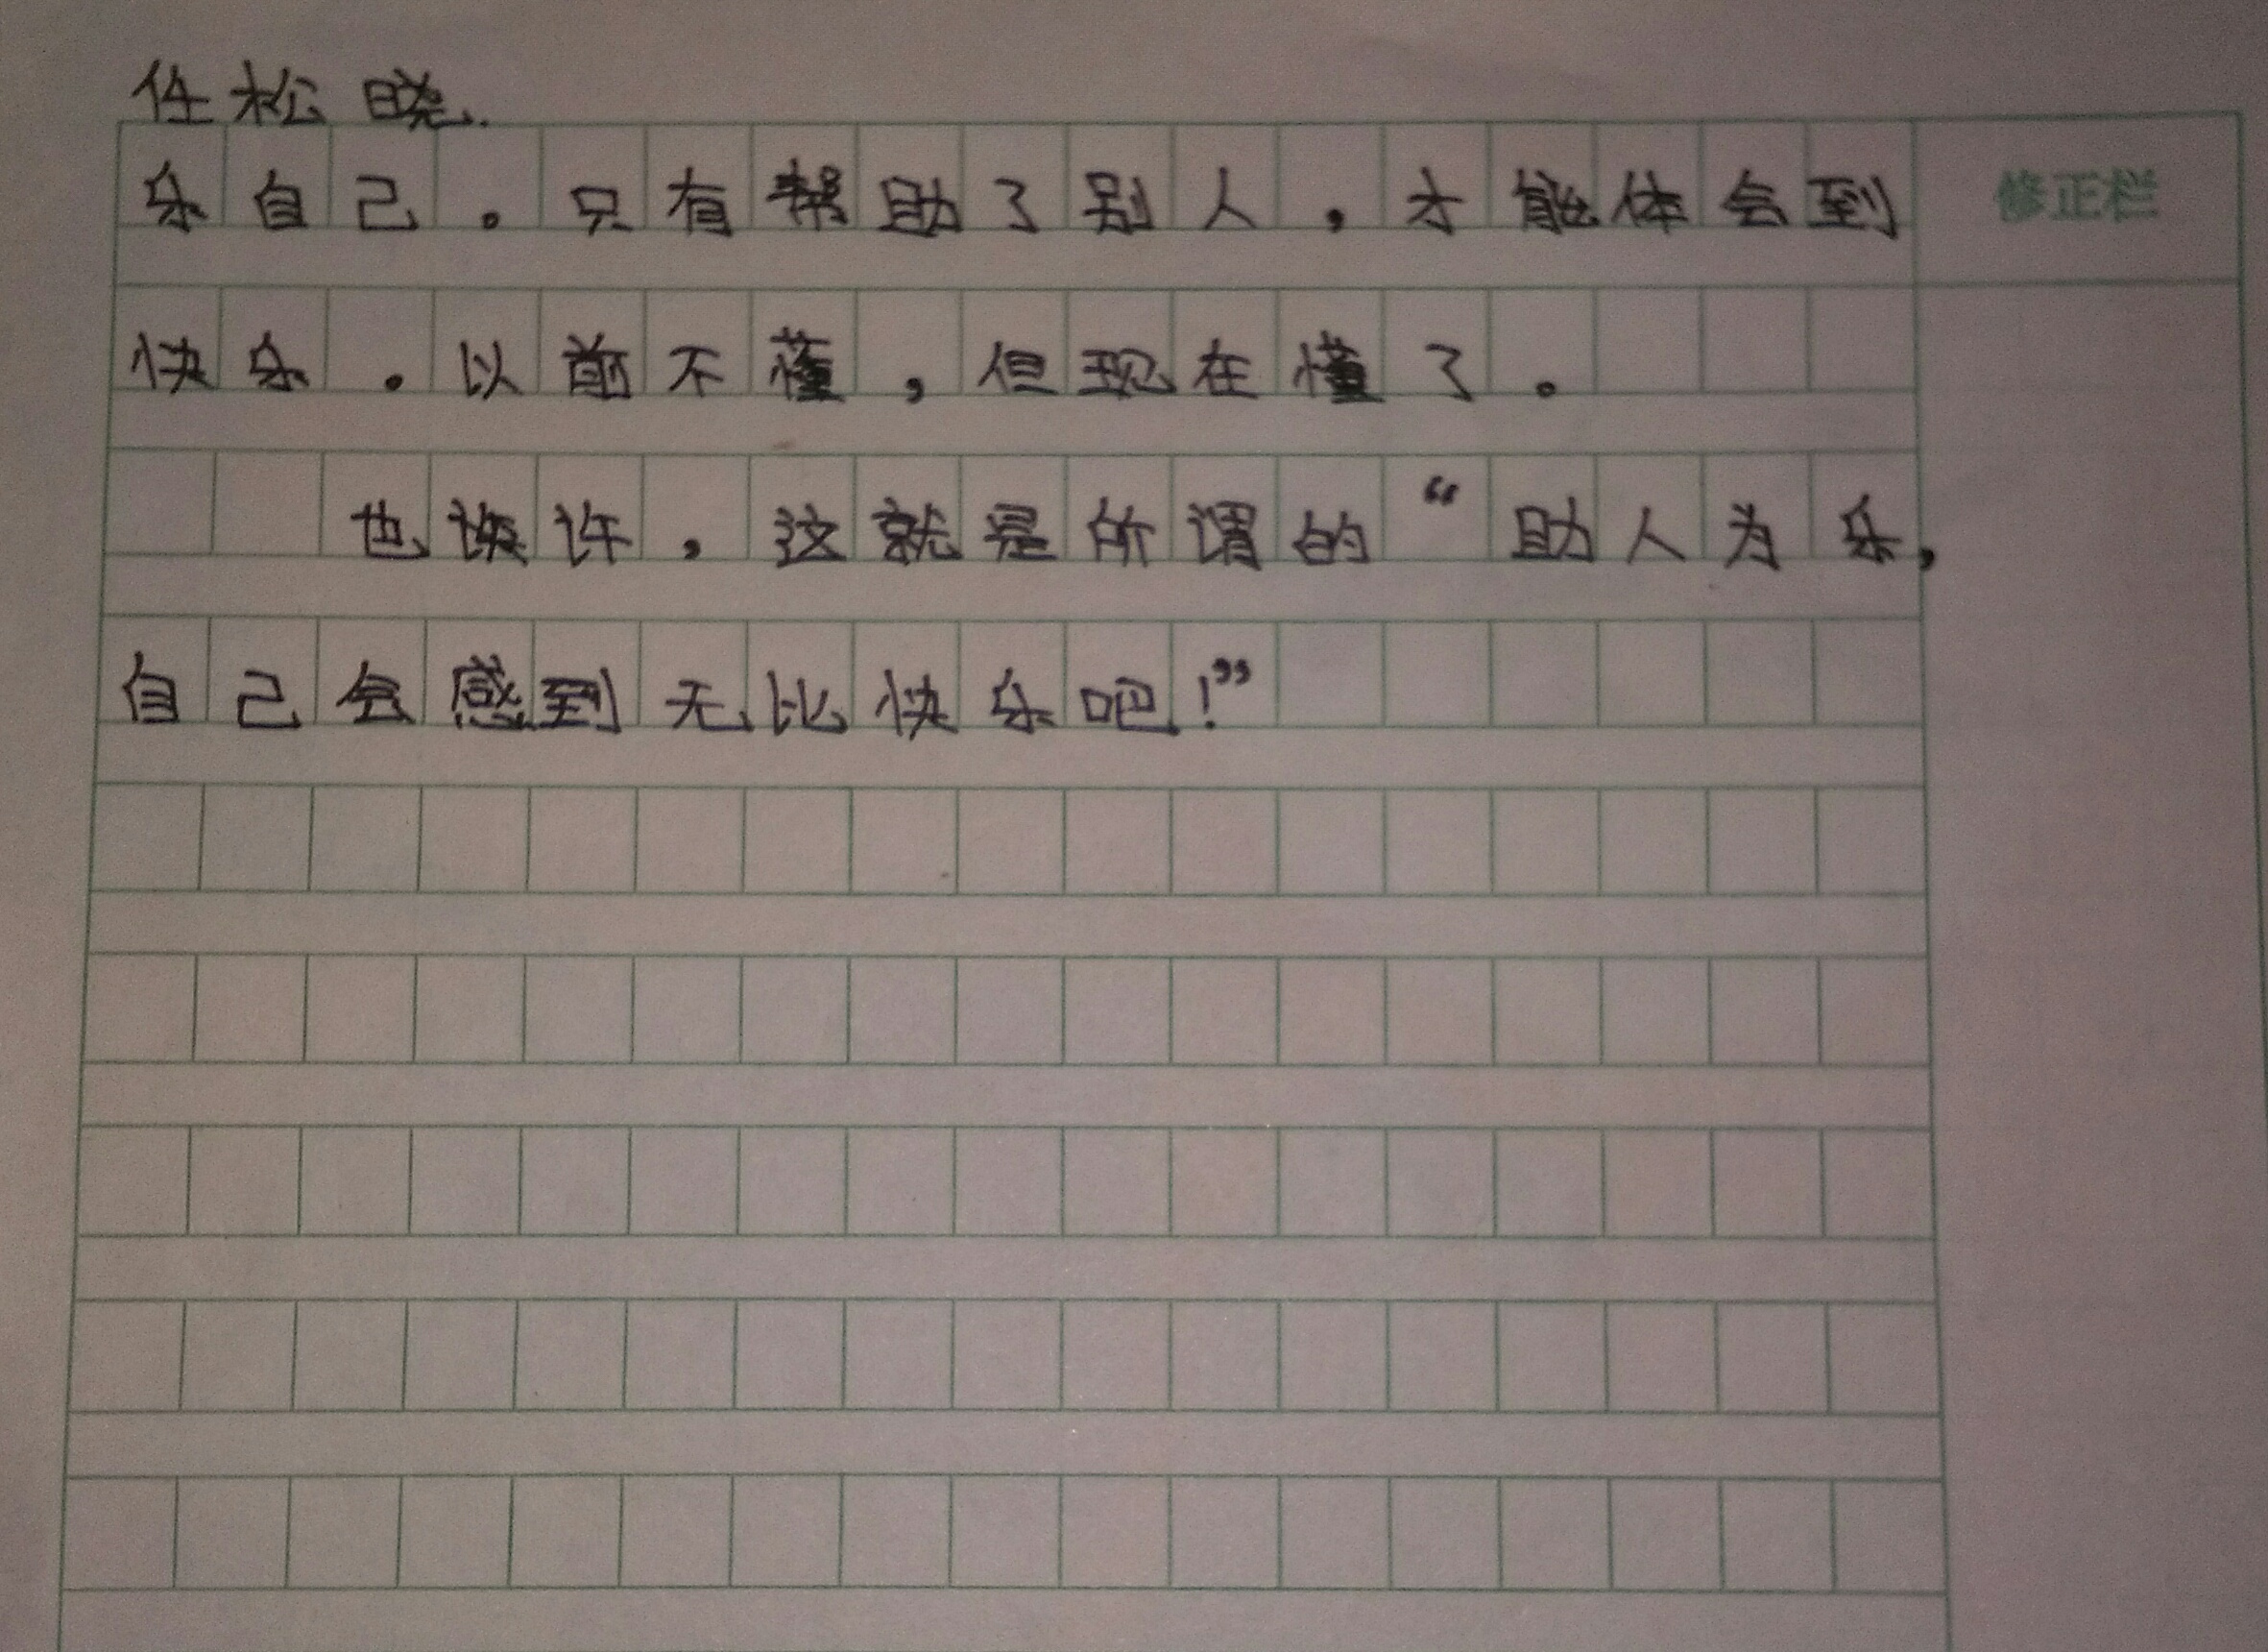 任松晓.
乐自己。只有帮助了别人，才能体会到
修正栏
快乐。以前不懂，但现在懂了。
也许，这就是所谓的“助人为乐，
自己会感到无比快乐吧！”